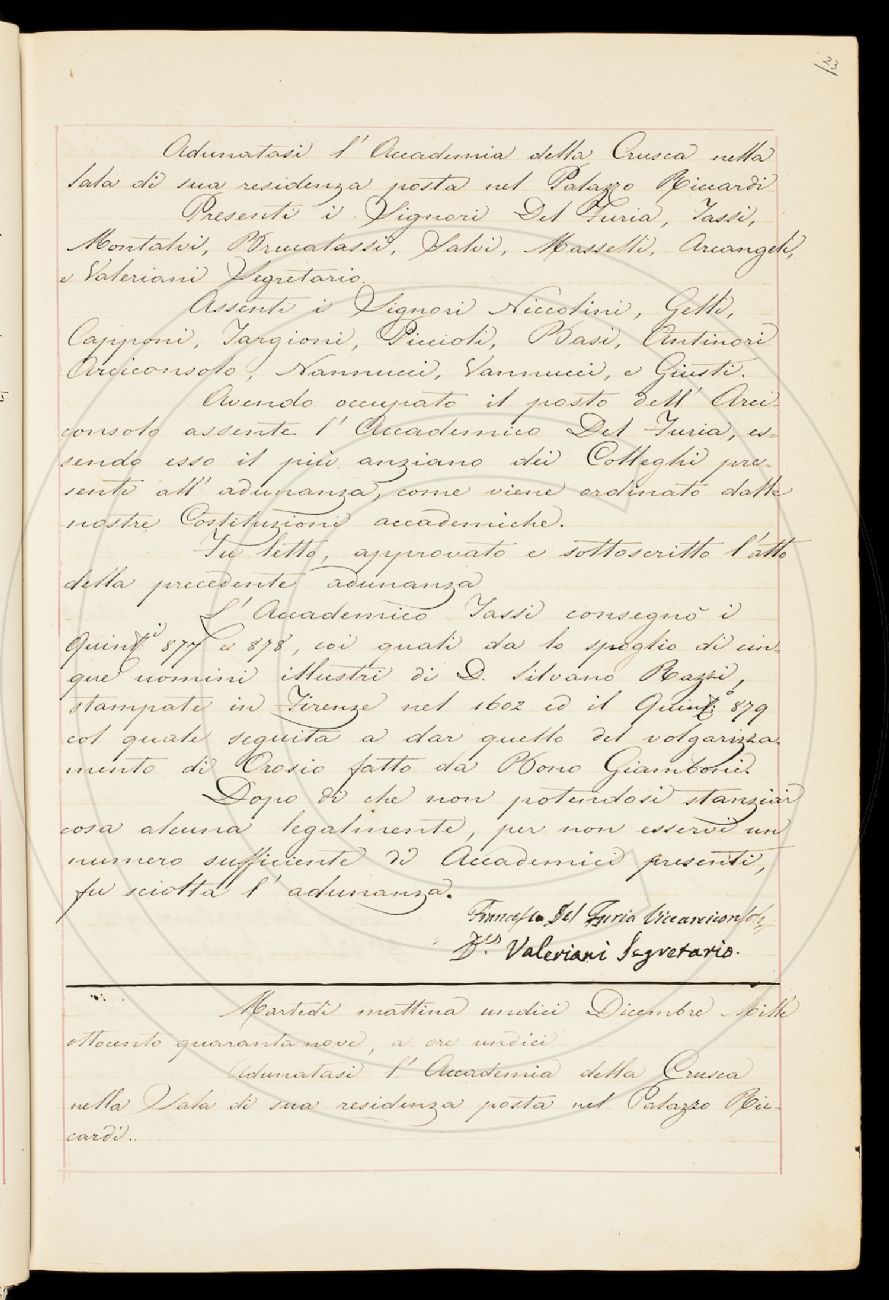 23
Adunatasi l' Accademia della Crusca nella
Sala di sua residenza posta nel Palazzo Riccardi
Presenti i Signori Del Furia, Tassi,
Montalvi, Bruciatassi, Salvi, Masselli, Arcangeli,
e Valeriani Segretario.
Assenti i Signori Niccolini, Gelli,
Capponi, Targioni, Piccioli, Basi, Antinori
Arciconsolo, Nannucci, Vannucci, e Giusti.
Avendo occupato il posto dell' Arci-
consolo assente l' Accademico Del Furia, es-
sendo esso il più anziano dei Colleghi pre-
senti all' adunanza, come viene ordinato dalle
nostre Costituzioni accademiche.
Fu letto, approvato e sottoscritto l'atto
della precedente adunanza
L' Accademico Tassi consegnò i
Quint.i 877 e 878, coi quali da lo spoglio di cin-
que uomini illustri di D. Silvano Razzi,
stampate in Firenze nel 1602 ed il Quint.o 879
col quale seguita a dar quello del volgarizza-
mento di Orosio fatto da Bono Giamboni.
Dopo di che non potendosi stanziar
cosa alcuna legalmente, per non esservi un
numero sufficiente di Accademici presenti,
fu sciolta l' adunanza.
Francesco Del Furia Vicearciconsolo
D.co Valeriani Segretario.
Martedì mattina undici Dicembre Mille
ottocento quarantanove, a ore undici
Adunatasi l' Accademia della Crusca
nella Sala di sua residenza posta nel Palazzo Ric-
cardi..